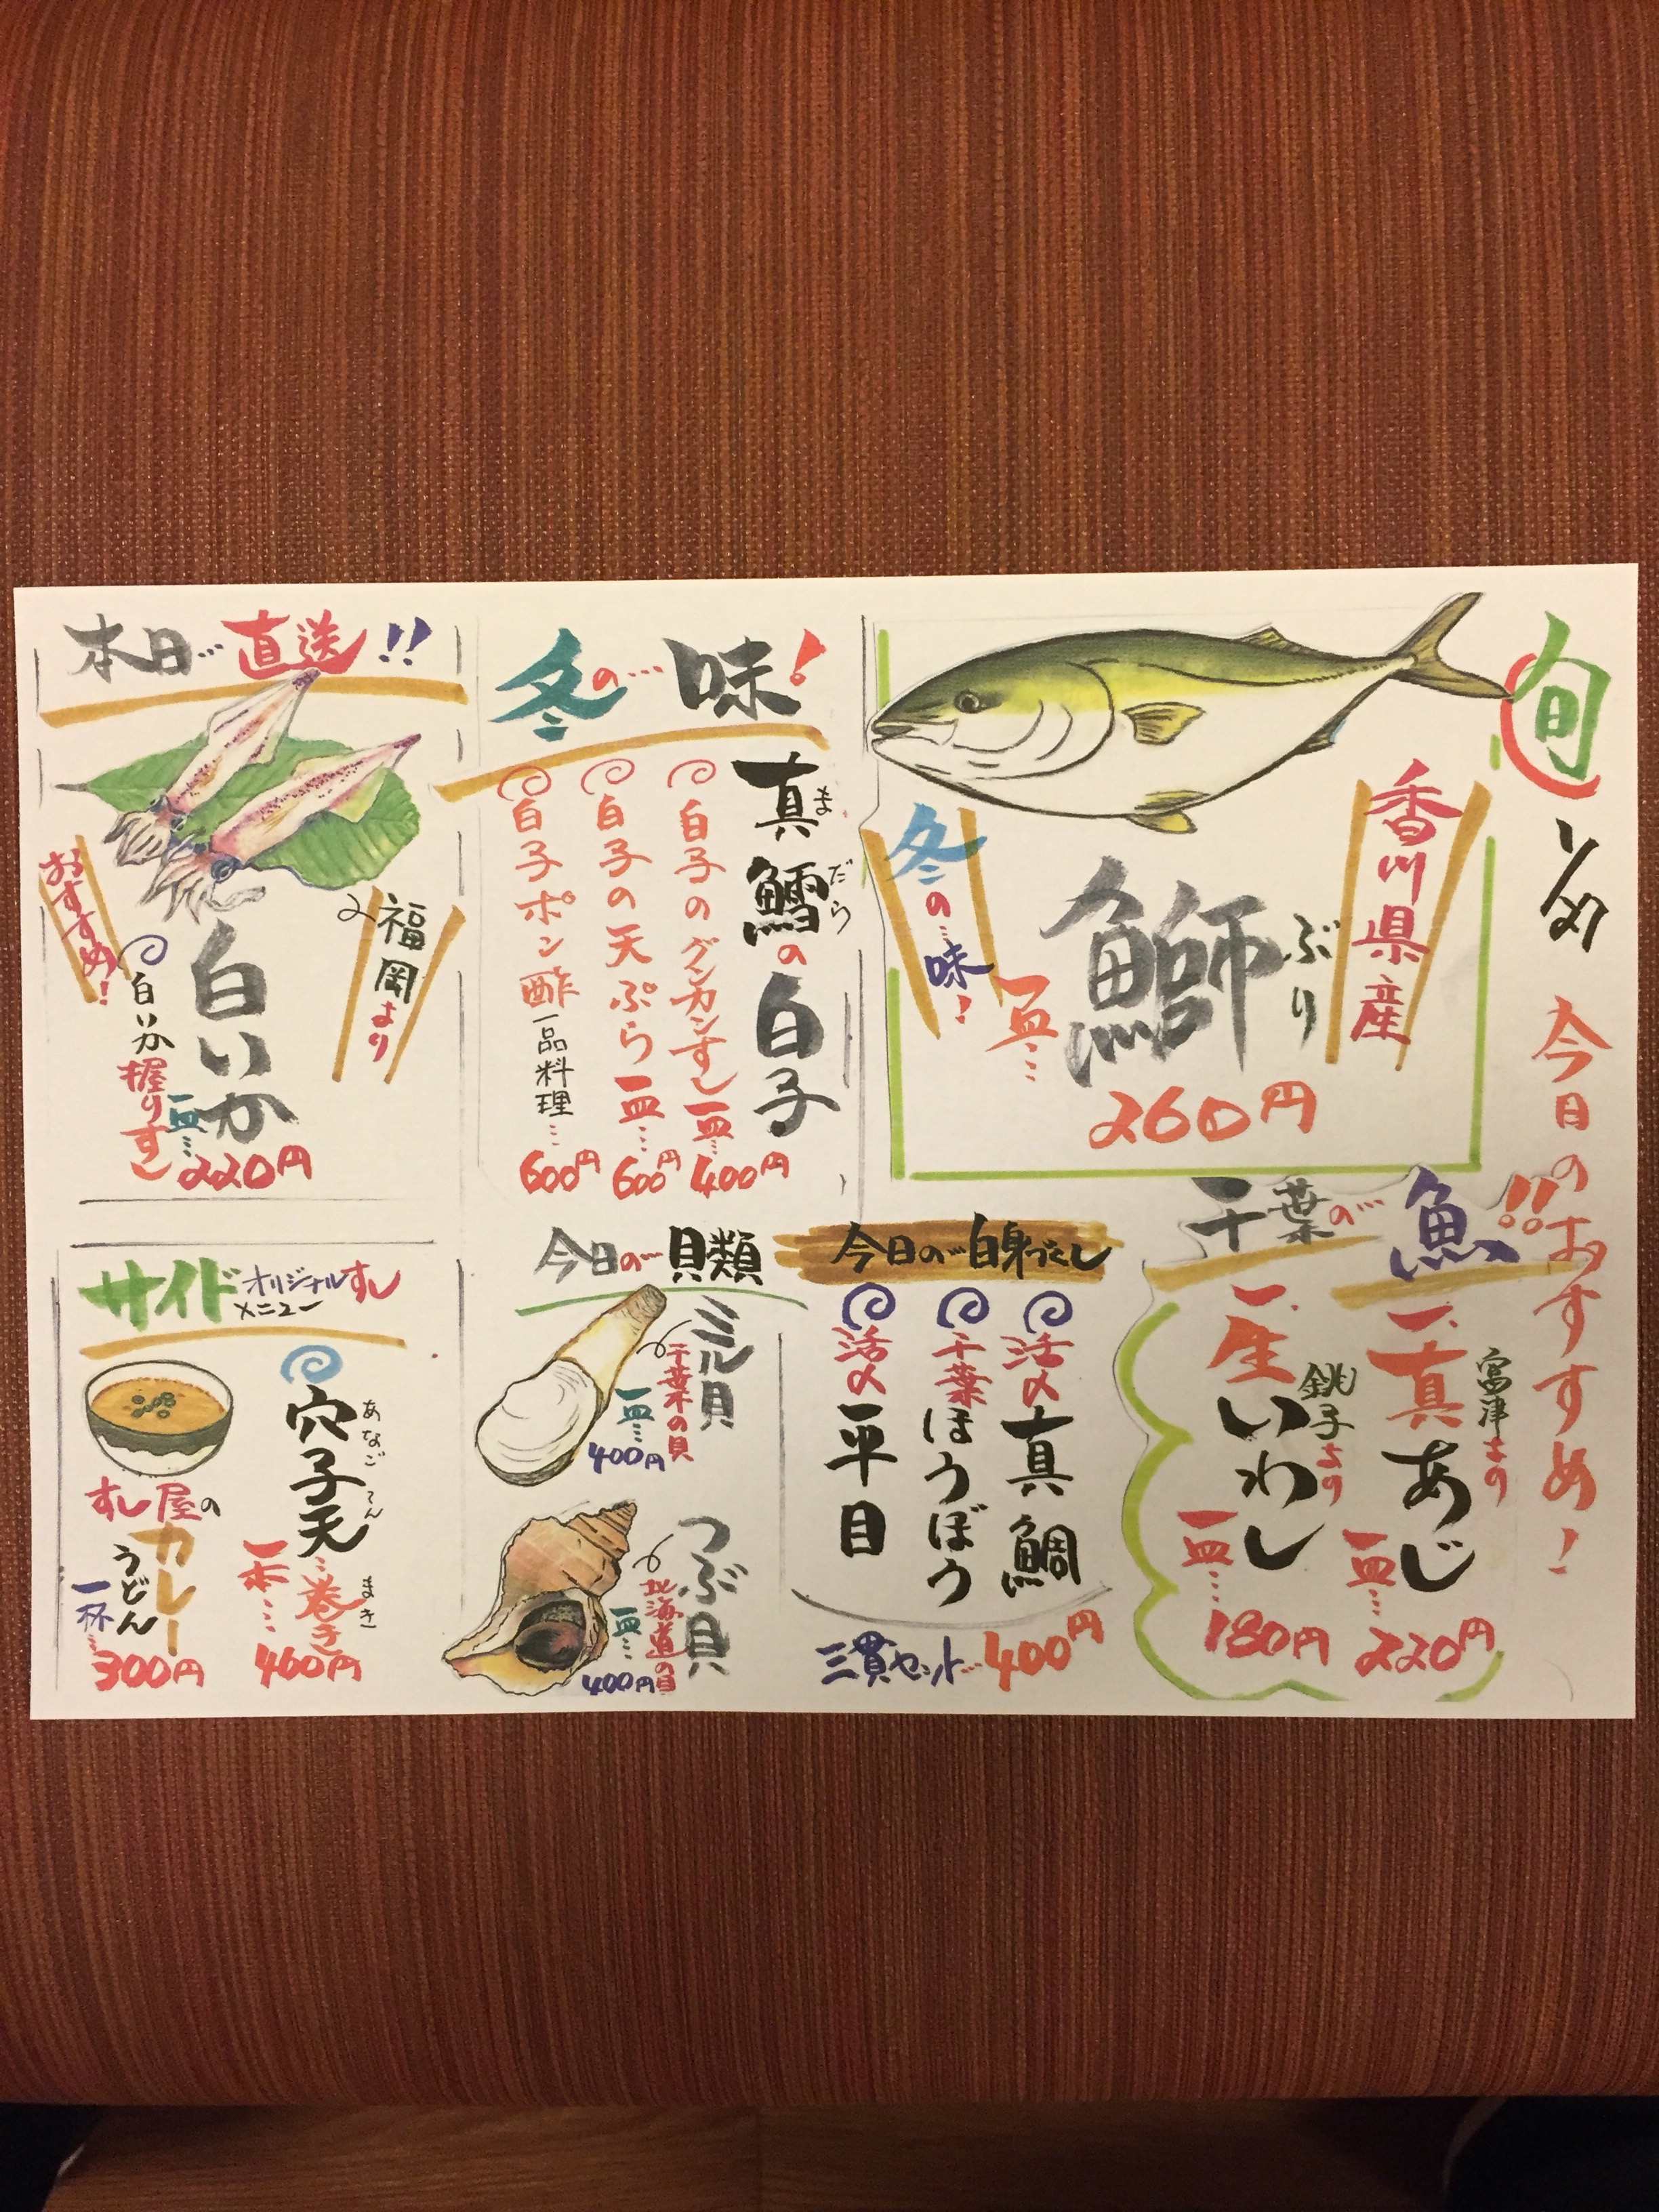 旬
今日のおすすめ!
香川県産
ぶり
鰤
冬の味!
一皿…
260円
千葉の…魚!!
富津より
一、真あじ
一皿…
220円
銚子より
一、生いわし
一皿…
180円
冬の…味!
真鱈の白子
まだら
白子のグンカンすし一皿…
400円
白子の天ぷら一皿…
600円
白子ポン酢一品料理…
600円
今日の…白身づくし
活〆真鯛
千葉ほうぼう
活〆平目
三貫セット…400円
今日の…貝類
ミル貝
千葉の貝
一皿…
400円
つぶ貝
北海道の貝
一皿…
400円
本日…直送!!
福岡より
白いか
おすすめ!
白いか握りすし
一皿…
220円
サイドメニュー
オリジナルすし
穴子天…巻き
あなごてん
まき
一本…
400円
すし屋の
カレー
うどん
一杯…
300円